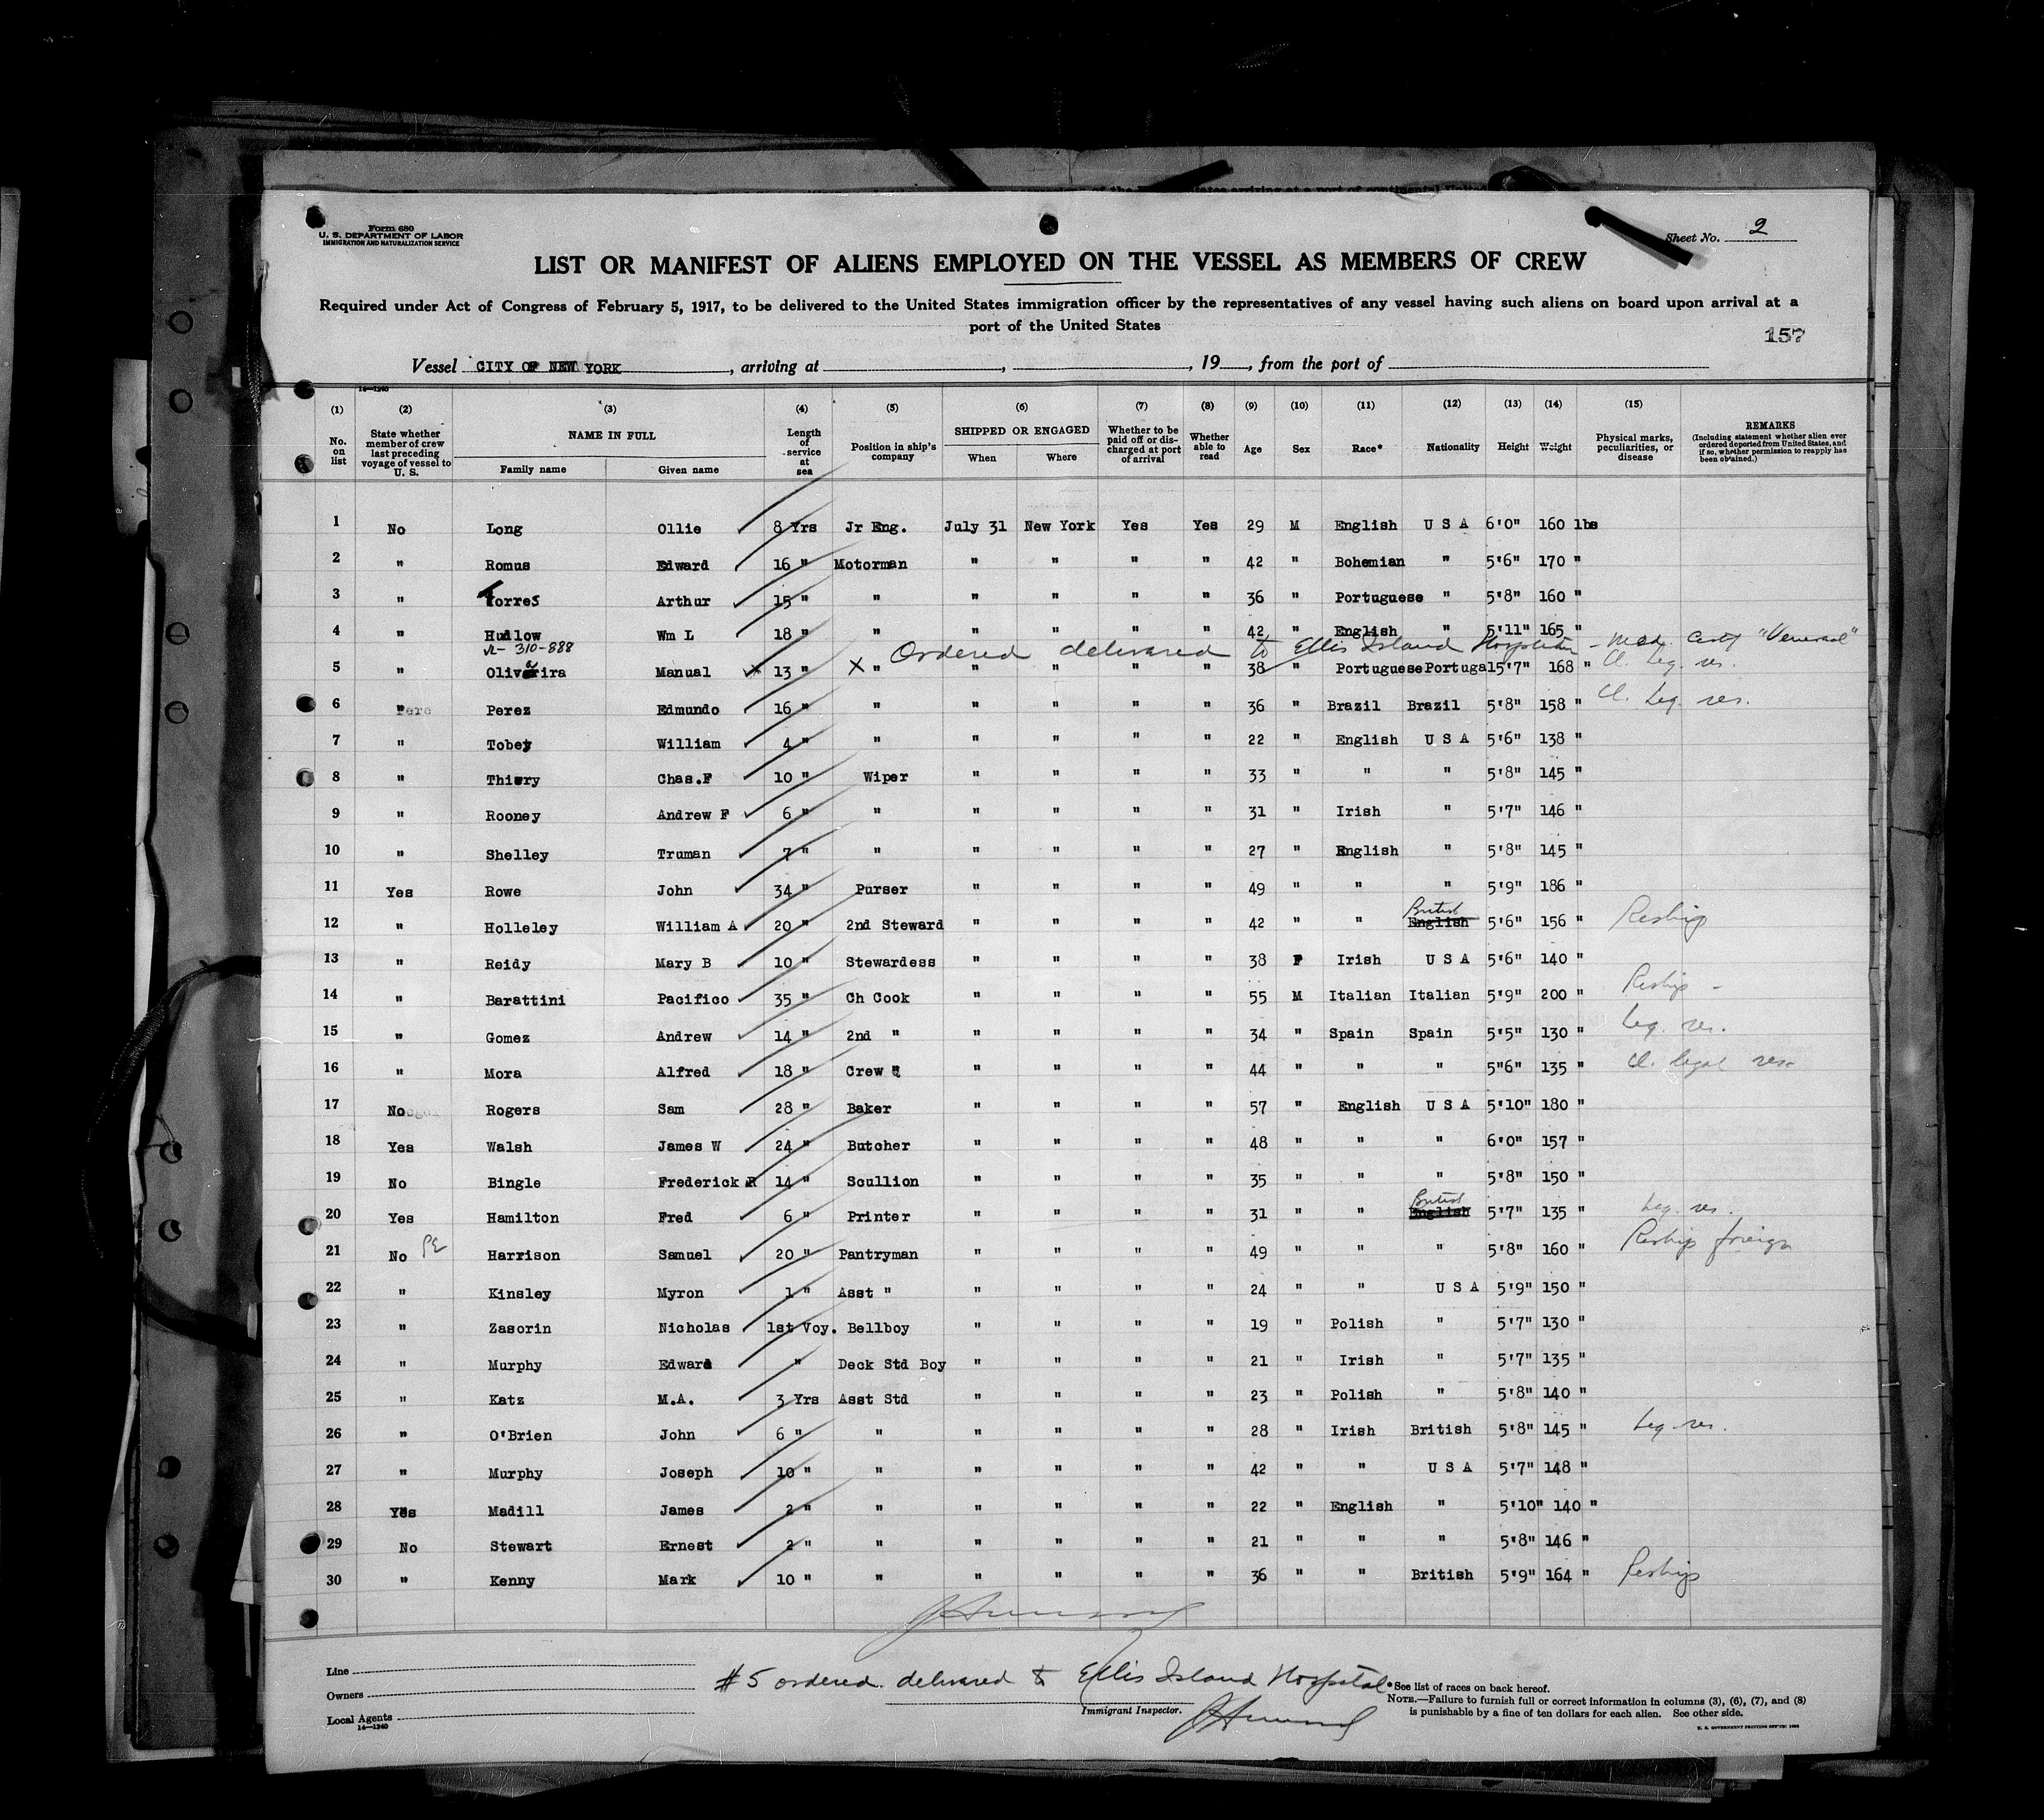 Form 680
U. S. DEPARTMENT OF LABOR
IMMIGRATION AND NATURALIZATION SERVICE
Sheet No. 2
LIST OR MANIFEST OF ALIENS EMPLOYED ON THE VESSEL AS MEMBERS OF CREW
Required under Act of Congress of February 5, 1917, to be delivered to the United States immigration officer by the representatives of any vessel having such aliens on board upon arrival at a
port of the United States
157
Vessel CITY OF NEW YORK, arriving at , , 19 , from the port of
14—1240
(1) (2) (3) (4) (5) (6) (7) (8) (9) (10) (11) (12) (13) (14) (15)
No. on list State whether member of crew last preceding voyage of vessel to U. S. NAME IN FULL Family name Given name Length of service at sea Position in ship's company SHIPPED OR ENGAGED When Where Whether to be paid off or discharged at port of arrival Whether able to read Age Sex Race* Nationality Height Weight Physical marks, peculiarities, or disease REMARKS (Including statement whether alien ever ordered deported from United States, and if so, whether permission to reapply has been obtained.)
1 No Long Ollie 8 Yrs Jr Eng. July 31 New York Yes Yes 29 M English U S A 6'0" 160 lbs
2 " Romus Edward 16 " Motorman " " " " 42 " Bohemian " 5'6" 170 "
3 " Torres Arthur 15 " " " " " " 36 " Portuguese " 5'8" 160 "
4 " Hudlow Wm L 18 " " " " " " 42 " English " 5'11" 165 "
310-888 Ordered delivered to Ellis Island Hospital - Med. Cert "Venereal"
5 " Olivaira Manual X 13 " X " 38 " Portuguese Portugal 5'7" 168 " Cl. Leg. res.
6 " Perez Edmundo 16 " " " " " " 36 " Brazil Brazil 5'8" 158 " Cl. Leg. res.
7 " Tobey William 4 " " " " " " 22 " English U S A 5'6" 138 "
8 " Thiery Chas.F 10 " Wiper " " " " 33 " " " 5'8" 145 "
9 " Rooney Andrew F 6 " " " " " " 31 " Irish " 5'7" 146 "
10 " Shelley Truman 7 " " " " " " 27 " English " 5'8" 145 "
11 Yes Rowe John 34 " Purser " " " " 49 " " " 5'9" 186 "
12 " Holleley William A 20 " 2nd Steward " " " " 42 " " English British 5'6" 156 " Reship
13 " Reidy Mary B 10 " Stewardess " " " " 38 F Irish U S A 5'6" 140 "
14 " Barattini Pacifico 35 " Ch Cook " " " " 55 M Italian Italian 5'9" 200 " Reship -
15 " Gomez Andrew 14 " 2nd " " " " " 34 " Spain Spain 5'5" 130 " Leg. res.
16 " Mora Alfred 18 " Crew " " " " " 44 " " " 5"6" 135 " Cl. legal res.
17 No Rogers Sam 28 " Baker " " " " 57 " English U S A 5'10" 180 "
18 Yes Walsh James W 24 " Butcher " " " " 48 " " " 6'0" 157 "
19 No Bingle Frederick R 14 " Scullion " " " " 35 " " " 5'8" 150 "
20 Yes Hamilton Fred 6 " Printer " " " " 31 " " English British 5'7" 135 " Leg. res.
21 No Harrison Samuel 20 " Pantryman " " " " 49 " " " 5'8" 160 " Reship foreign
22 " Kinsley Myron 1 " Asst " " " " " 24 " " U S A 5'9" 150 "
23 " Zasorin Nicholas 1st Voy. Bellboy " " " " 19 " Polish " 5'7" 130 "
24 " Murphy Edward " Deck Std Boy " " " " 21 " Irish " 5'7" 135 "
25 " Katz M.A. 3 Yrs Asst Std " " " " 23 " Polish " 5'8" 140 "
26 " O'Brien John 6 " " " " " " 28 " Irish British 5'8" 145 " Leg. res.
27 " Murphy Joseph 10 " " " " " " 42 " " U S A 5'7" 148 "
28 Yes Madill James 2 " " " " " " 22 " English " 5'10" 140 "
29 No Stewart Ernest 2 " " " " " " 21 " " " 5'8" 146 "
30 " Kenny Mark 10 " " " " " " 36 " " British 5'9" 164 " Reship
Line
Owners
Local Agents
14—1240
#5 ordered delivered to Ellis Island Hospital
Immigrant Inspector.
*See list of races on back hereof.
NOTE.—Failure to furnish full or correct information in columns (3), (6), (7), and (8)
is punishable by a fine of ten dollars for each alien. See other side.